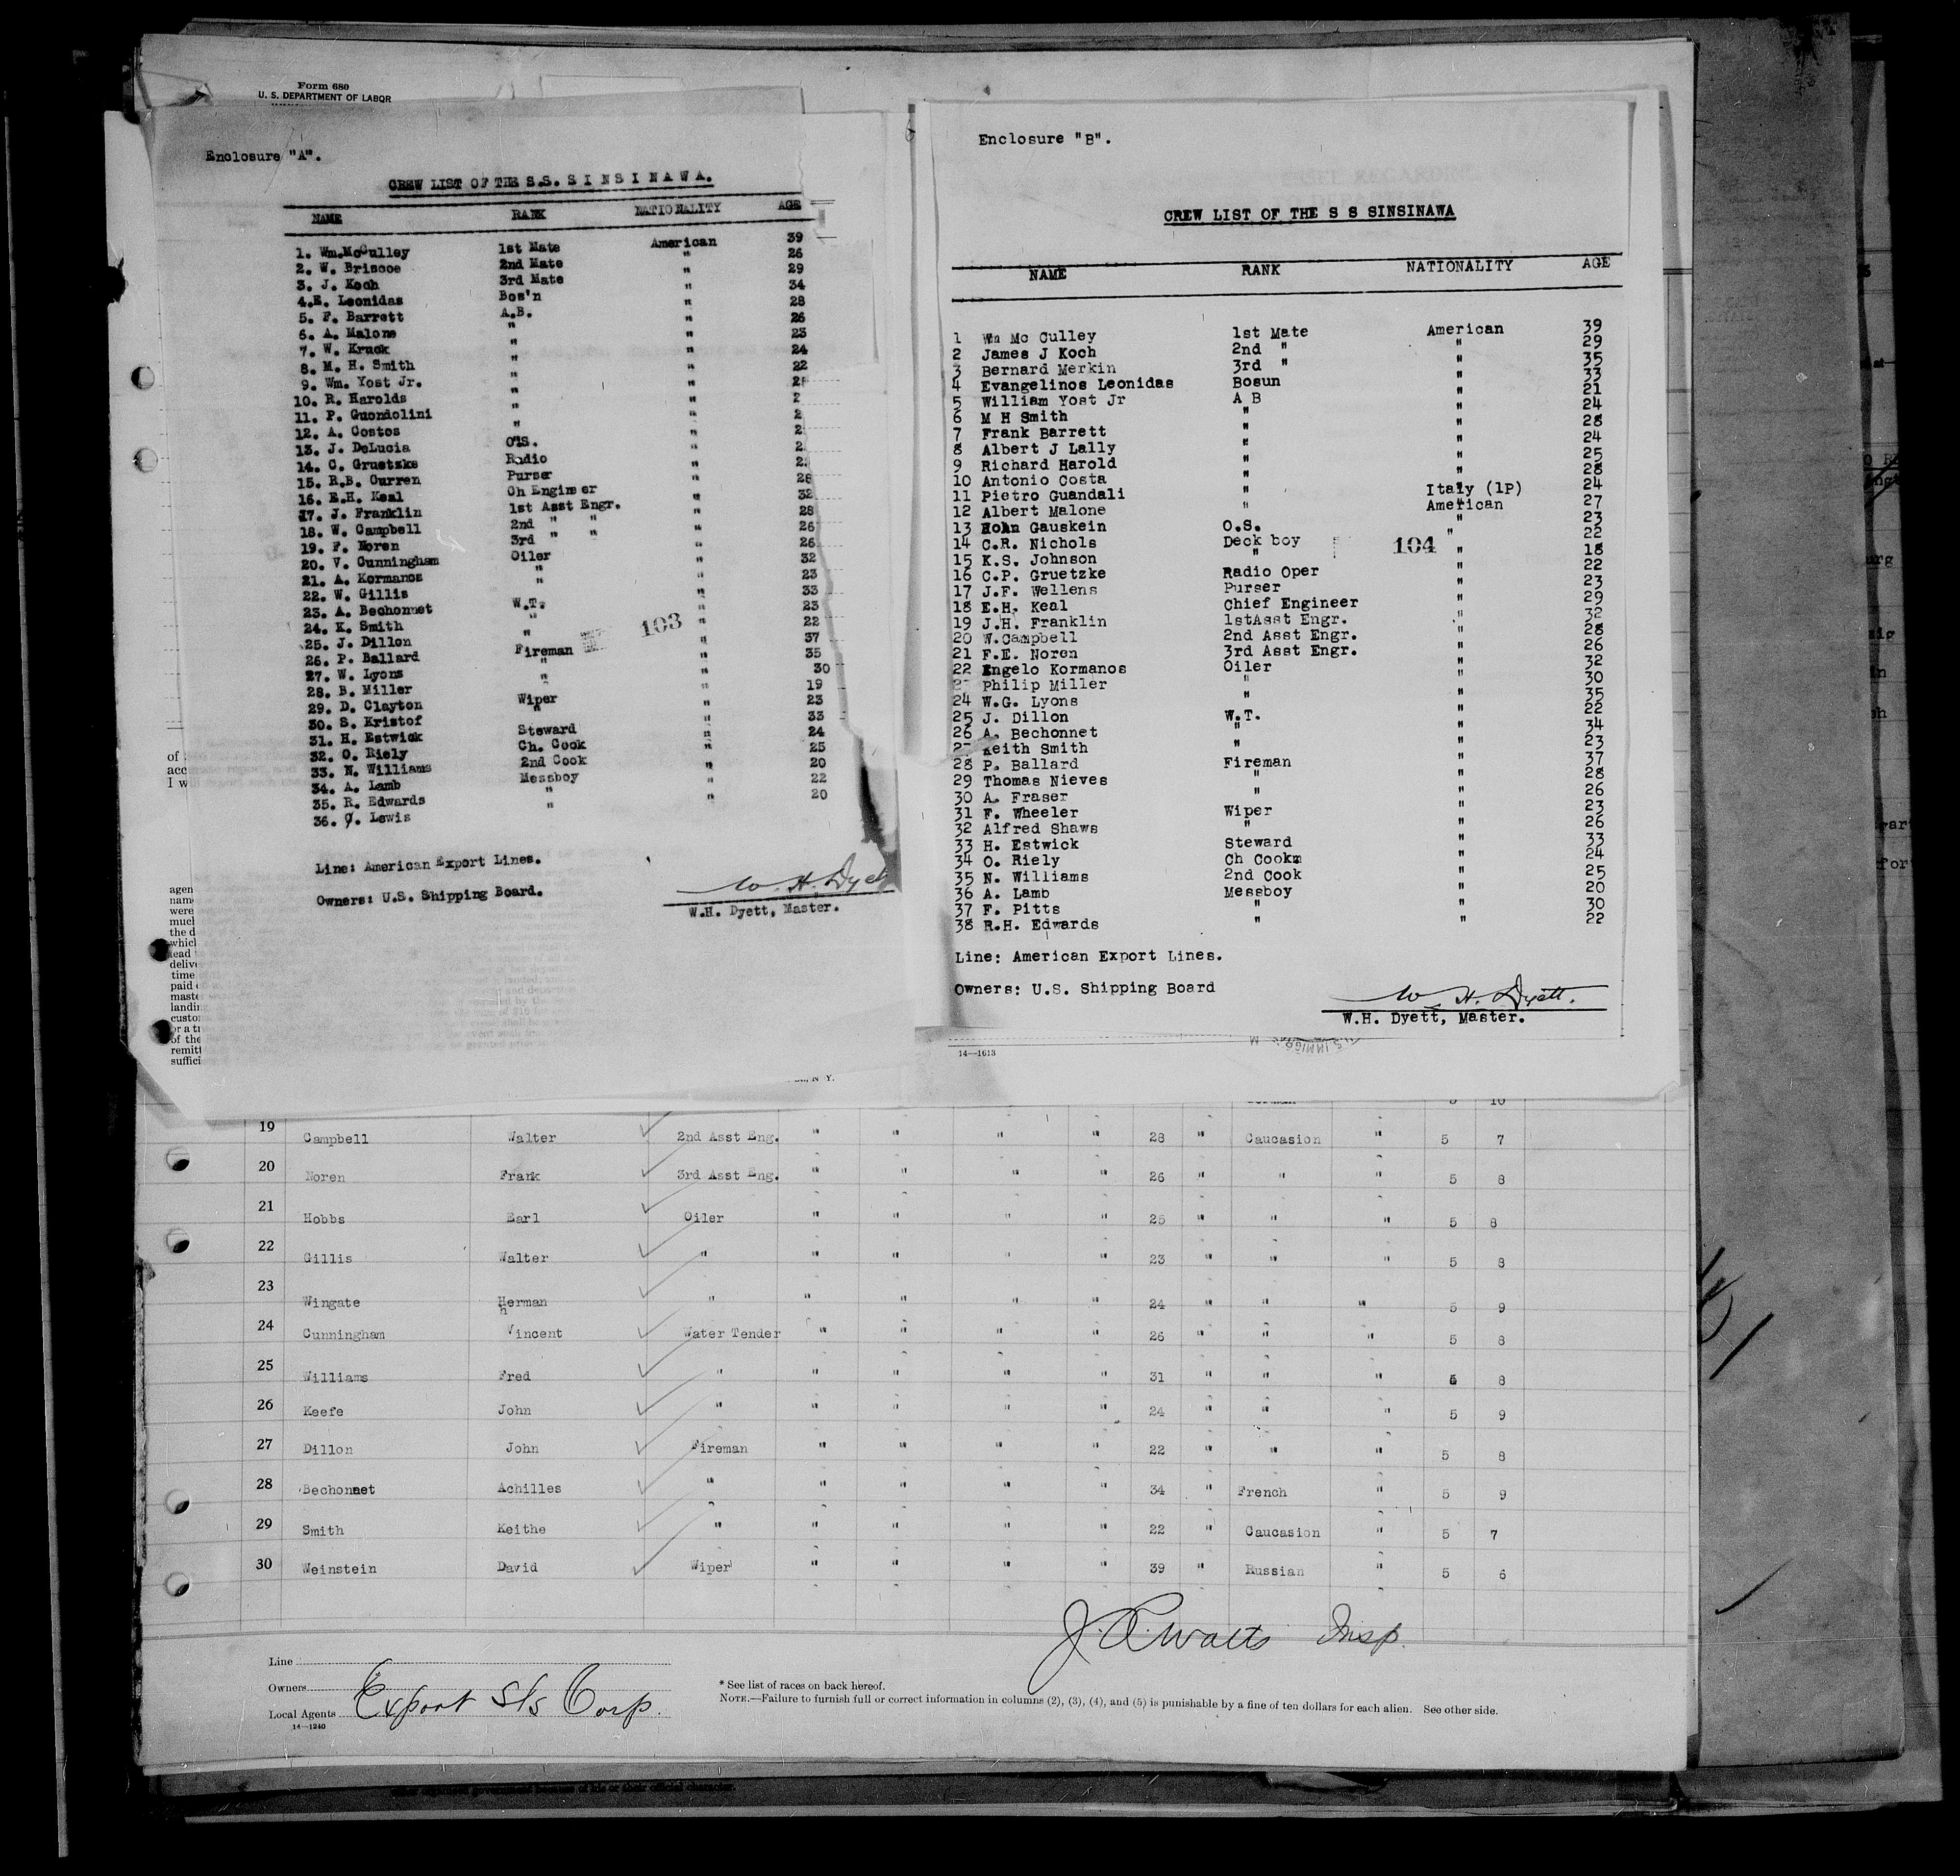 Form 680
U. S. DEPARTMENT OF LABOR
Enclosure "A".
CREW LIST OF THE S.S. S I N S I N A W A.
NAME RANK NATIONALITY AGE
1. Wm.McCulley 1st Mate American 39
2. W. Briscoe 2nd Mate " 26
3. J. Koch 3rd Mate " 29
4.E. Leonidas Bos'n " 34
5. F. Barrett A.B. " 28
6. A. Malone " " 26
7. W. Kruck " " 23
8. M. H. Smith " " 24
9. Wm. Yost Jr. " " 22
10. R. Harolds " "
11. P. Guondolini " "
12. A. Costos " "
13. J. DeLucia O.S. "
14. C. Gruetzke Radio "
15. R.B. Curren Purser " 28
16. E.H. Keal Ch Engineer " 32
17. J. Franklin 1st Asst Engr. " 28
18. W. Campbell 2nd " " " 26
19. F. Noren 3rd " " " 26
20. V. Cunningham Oiler " 32
21. A. Kormanos " " 23
22. W. Gillis " " 33
23. A. Bechonnet W.T. " 23
24. K. Smith " " 22
25. J. Dillon " " 37
26. P. Ballard Fireman " 35
27. W. Lyons " " 30
28. B. Miller " " 19
29. D. Clayton Wiper " 23
30. S. Kristof " " 33
31. H. Estwick Steward " 24
32. O. Riely Ch. Cook " 25
33. N. Williams 2nd Cook " 20
34. A. Lamb Messboy " 22
35. R. Edwards " " 20
36. J. Lewis "
103
Line: American Export Lines.
Owners: U.S. Shipping Board.
W. H. Dyett
W.H. Dyett, Master.
Enclosure "B".
CREW LIST OF THE S S SINSINAWA
NAME RANK NATIONALITY AGE
1 Wm Mc Culley 1st Mate American 39
2 James J Koch 2nd " " 29
3 Bernard Merkin 3rd " " 35
4 Evangelinos Leonidas Bosun " 33
5 William Yost Jr A B " 21
6 M H Smith " " 24
7 Frank Barrett " " 28
8 Albert J Lally " " 24
9 Richard Harold " " 25
10 Antonio Costa " " 28
11 Pietro Guandali " Italy (1P) 24
12 Albert Malone " American 27
13 John Gauskein O.S. " 23
14 C.R. Nichols Deck boy " 22
15 K.S. Johnson " " 18
16 C.P. Gruetzke Radio Oper " 22
17 J.F. Wellens Purser " 23
18 E.H. Keal Chief Engineer " 29
19 J.H. Franklin 1stAsst Engr. " 32
20 W.Campbell 2nd Asst Engr. " 28
21 F.E. Noren 3rd Asst Engr. " 26
22 Engelo Kormanos Oiler " 32
Philip Miller " " 30
24 W.G. Lyons " " 35
25 J. Dillon W.T. " 22
26 A. Bechonnet " " 34
Keith Smith " " 23
28 P. Ballard Fireman " 37
29 Thomas Nieves " " 28
30 A. Fraser " " 26
31 F. Wheeler Wiper " 23
32 Alfred Shaws " " 26
33 H. Estwick Steward " 33
34 O. Riely Ch Cook " 24
35 N. Williams 2nd Cook " 25
36 A. Lamb Messboy " 20
37 F. Pitts " " 30
38 R.H. Edwards " " 22
104
Line: American Export Lines.
Owners: U.S. Shipping Board
W. H. Dyett.
W.H. Dyett, Master.
14—1613
19 Campbell Walter 2nd Asst Eng. " " " " 28 " Caucasion " 5 7
20 Noren Frank 3rd Asst Eng. " " " " 26 " " " 5 8
21 Hobbs Earl Oiler " " " " 25 " " " 5 8
22 Gillis Walter " " " " " 23 " " " 5 8
23 Wingate Herman " " " " " 24 " " " 5 9
24 Cunningham Vincent Water Tender " " " " 26 " " " 5 8
25 Williams Fred " " " " " 31 " " " 5 8
26 Keefe John " " " " " 24 " " " 5 9
27 Dillon John Fireman " " " " 22 " " " 5 8
28 Bechonnet Achilles " " " " " 34 " French " 5 9
29 Smith Keithe " " " " " 22 " Caucasion " 5 7
30 Weinstein David Wiper " " " " 39 " Russian " 5 6
J. R. Watts Insp.
Line
Owners
Local Agents Export S/s Corp.
14—1240
* See list of races on back hereof.
NOTE.—Failure to furnish full or correct information in columns (2), (3), (4), and (5) is punishable by a fine of ten dollars for each alien. See other side.